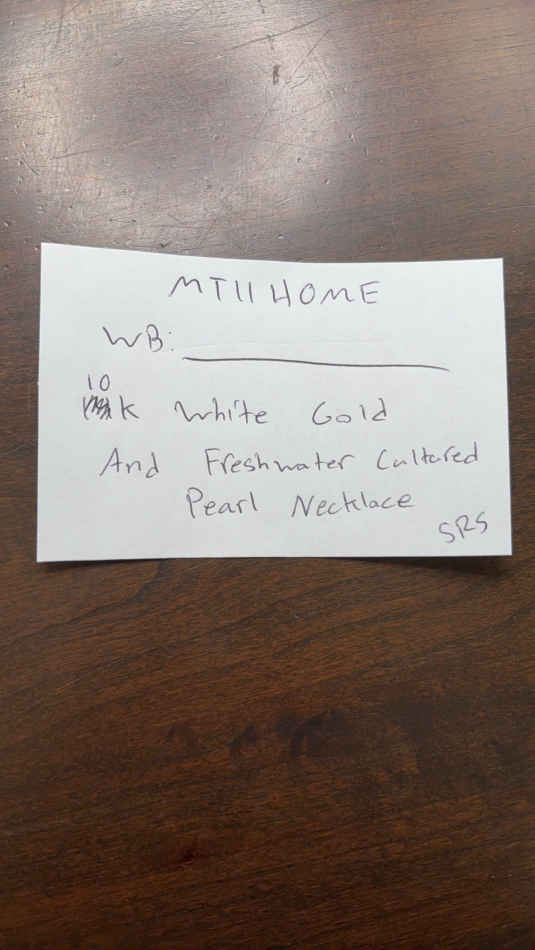 MT11HOME
WB:
10
K White Gold
And Freshwater Cultured
Pearl Necklace
SRS